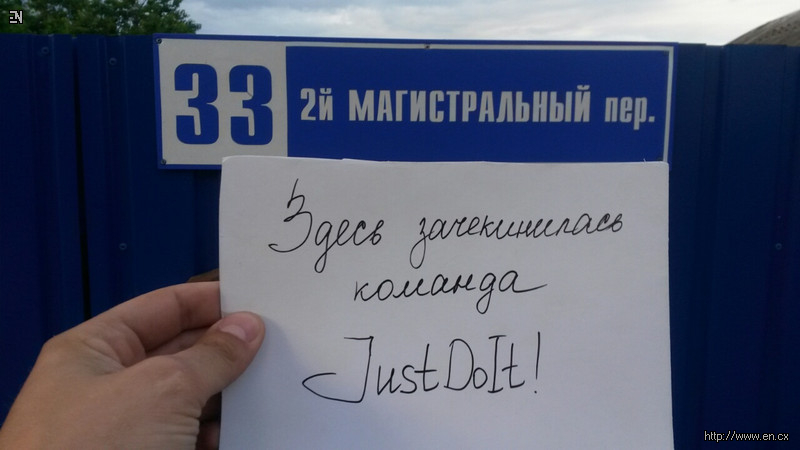 EN
33
2й МАГИСТРАЛЬНЫЙ пер.
Здесь зачекинилась
команда
JustDoIt!
http://www.en.cx